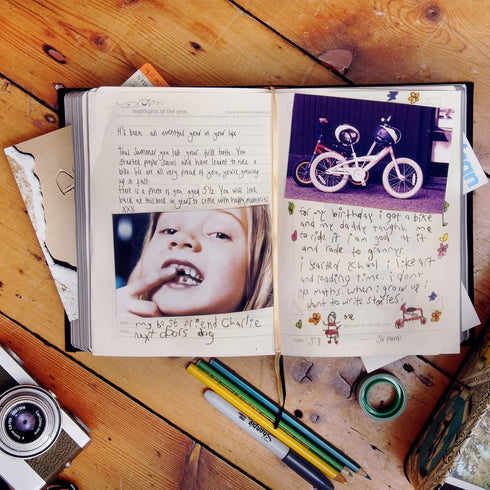 highlights of the year
It's been an eventful year in your life.
This Summer you lost your first tooth. You
started proper School and have learned to ride a
bike. We are all very proud of you, you're growing
up so fast.
Here is a photo of you aged 5½. You will look
back at this book in years to come with happy memories.
XXX
my best friend Charlie
next doors dog
for my birthday i got a bike
and my daddy taught me
to ride it i am good at it
and rode to grannys.
i started school i like art
and reading time. i dont
like maths when i grow up i
want to write stories.
me
Sharpie